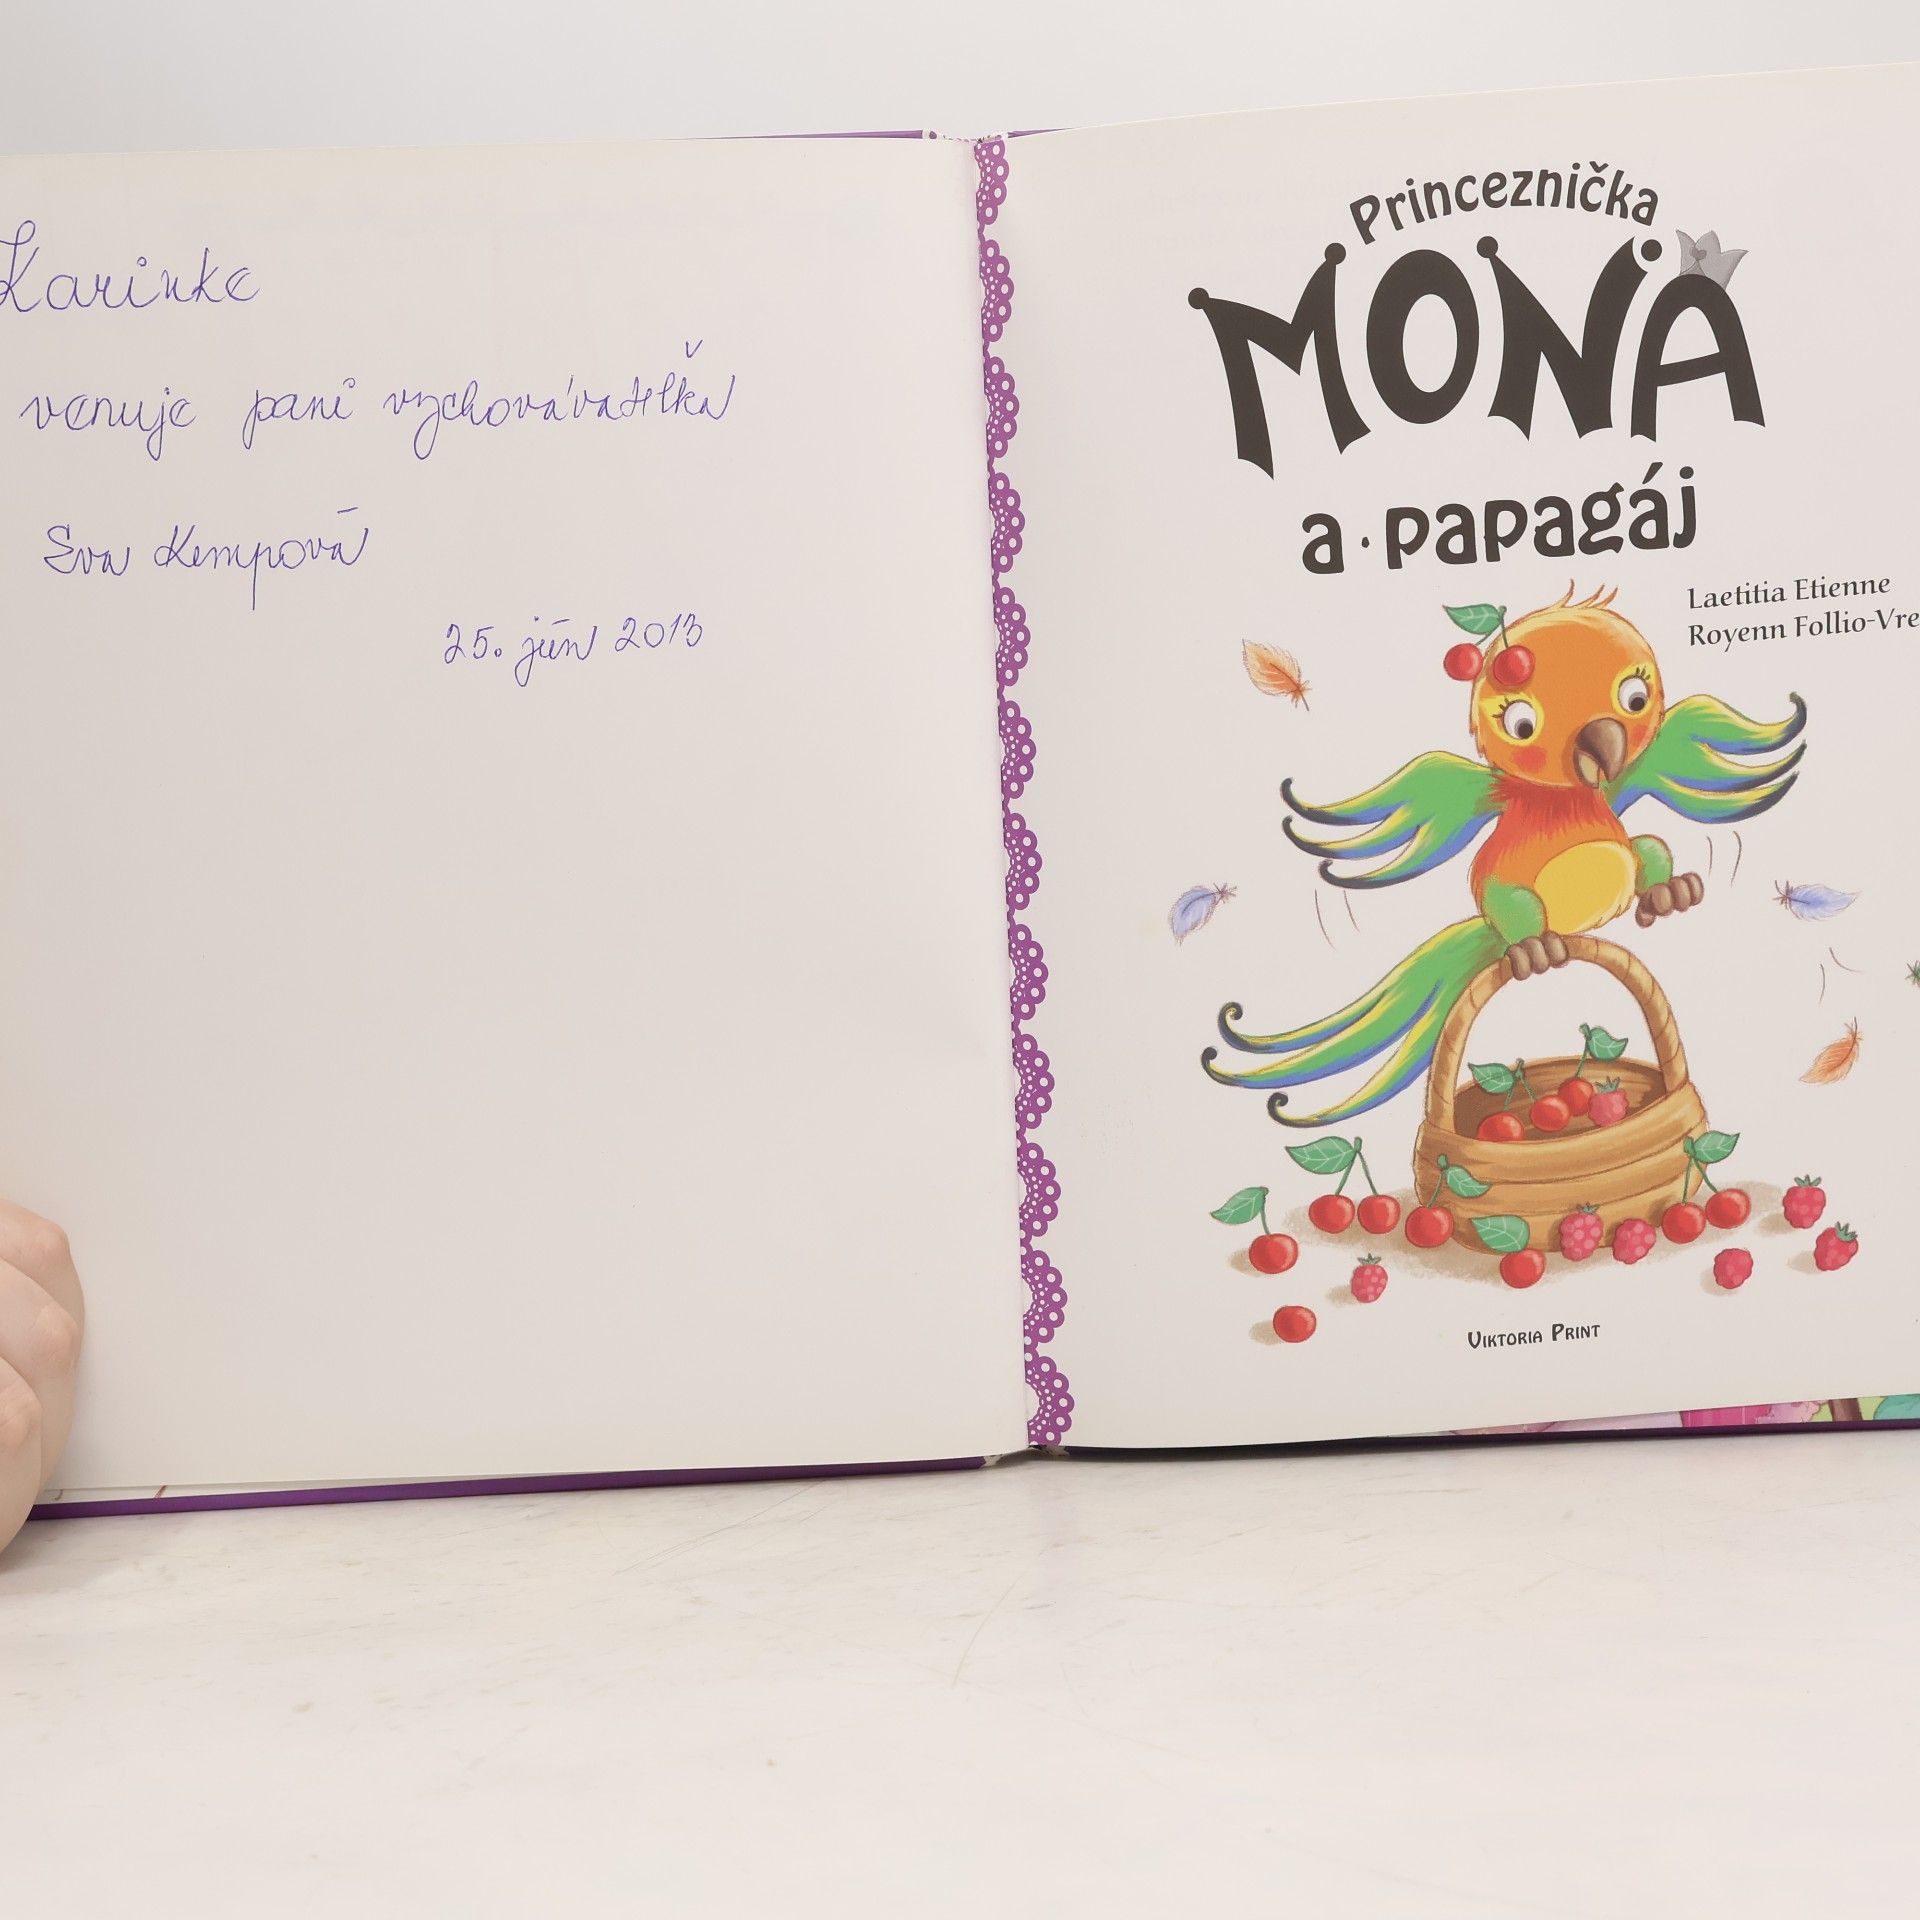 Karinke
venuje pani vychovávateľka
Eva Kempová
25. jún 2013
Princeznička
MONA
a · papagáj
Laetitia Etienne
Royenn Follio-Vre
VIKTORIA PRINT